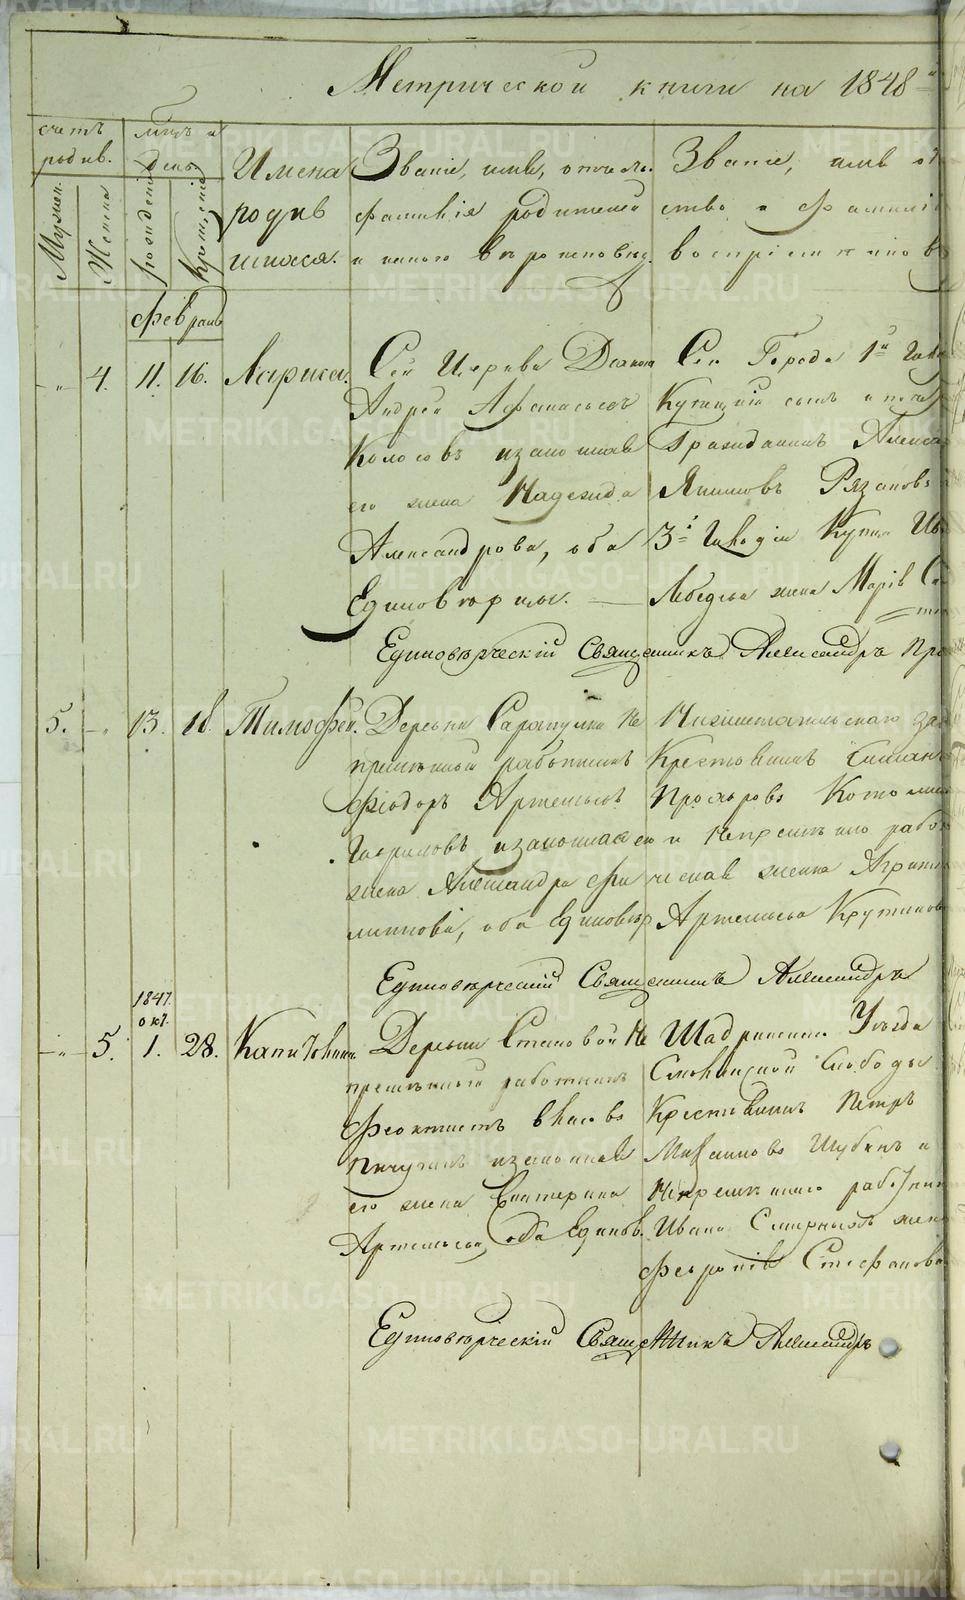 Метрической книги на 1848й
счетъ родив.
Мужеск.
Женска
Мцъ и день
рожденія
крещенія
Имена родив
шихся.
Званіе, имя, отчест.
фамилія родителей
и какого вѣроисповѣд.
Званіе, имя от
ство и фамилія
воспріемниковъ
Февраль
- " 4. 11. 16. Лариса.
Сей Церкви Діакона
Андрей Афанасьевъ
Колосовъ изаконная
его жена Надежда
Александрова, оба
Единовѣрцы.
Сег Города 1й Гил
Купецкій сынъ и поче
Гражданинъ Алекса
Якимовъ Рязановъ
3й Гильдіи Купца Ив
жена Марія
Единовѣрческій Священникъ Александръ
5. - " 13. 18. Тимофей.
Деревни Сарапулки Не
премѣнный работникъ
Фіодоръ Артемьевъ
Гавриловъ изаконная его
жена Александра Фи
липпова, оба Единовѣр
Нижнетагильскаго за
Крестьянинъ
Прохоровъ
и Непремѣннаго рабо
жена
Артемьева Крутикова
Единовѣрческій Священникъ Александръ
1847.
окт.
- " 5. 1. 28. Капитолина.
Деревни Становой Не
премѣнный работникъ
Феоктистъ Власовъ
Пичугинъ изаконная
его жена Екатерина
Артемьева, оба Единов.
Шадринскаго Уѣзда
Слободы
Крестьянинъ Петръ
Шубинъ и
Непремѣннаго работник
Ивана Смирныхъ жена
Февронія Стефанова
Единовѣрческій Священникъ Александръ
METRIKI.GASO-URAL.RU